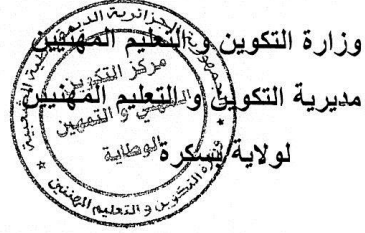 وزارة التكوين و التعليم المهنيين
مديرية التكوين و التعليم المهنيين
لولاية بسكرة
الجمهورية الجزائرية الديمقراطية الشعبية
مركز التكوين
المهني و التمهين
الوطاية
وزارة التكوين و التعليم المهنيين